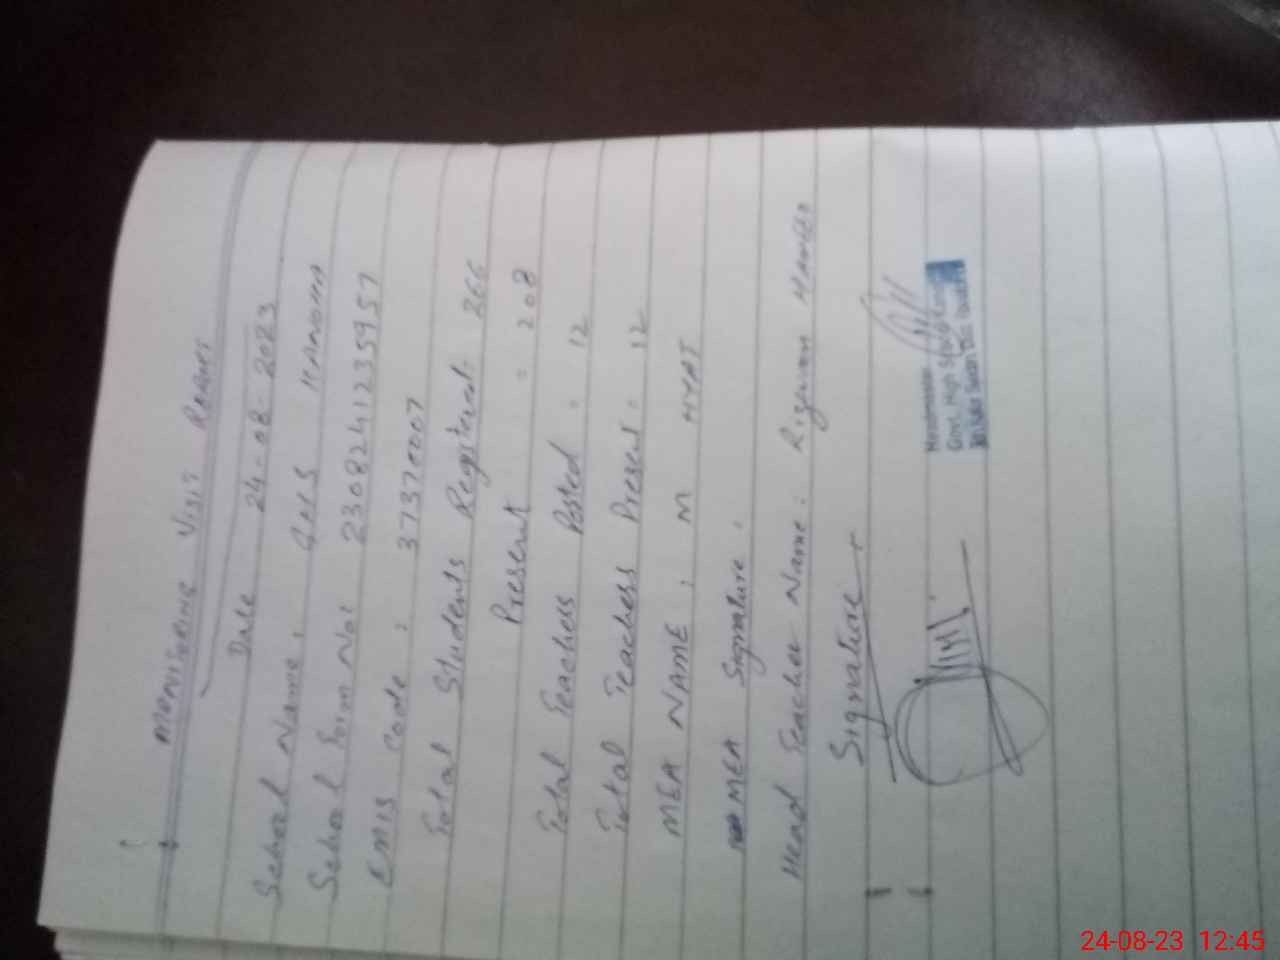 MONITORING VISIT PROFORMA
Date 24-08-2023
School Name : GHS KANOHA
School Form No: 2308241235957
EMIS Code : 37370007
Total Students Registered: 266
Present = 208
Total Teachers Posted = 12
Total Teachers Present = 12
MEA NAME : M HYAT
MEA Signature :
Head Teacher Name : Rizwan HAMEED
Signature
Headmaster
Govt. High School
24-08-23 12:45